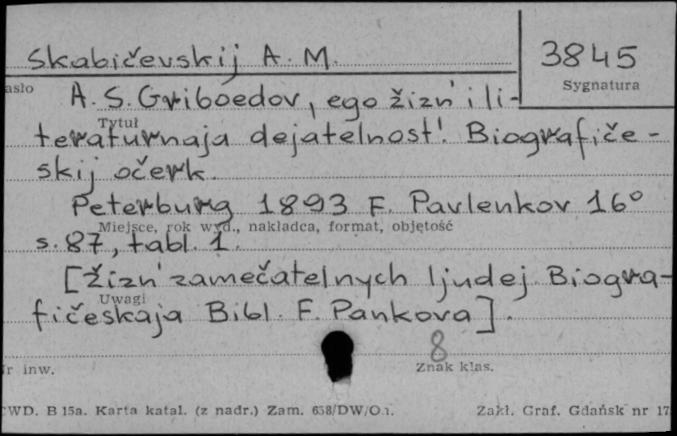 Skabičevskij A. M.
3845
asło
Sygnatura
A. S. Griboedov, ego žizn' i li-
Tytuł
teraturnaja dejatelnost'. Biografiče-
skij očerk.
Peterburg 1893 F. Pavlenkov 16°
Miejsce, rok wyd., nakładca, format, objętość
s. 87, tabl. 1.
[Žizn' zamečatelnych ljudej. Biogra-
Uwagi
fičeskaja Bibl. F. Pankova].
8
r inw.
Znak klas.
CWD. B 15a. Karta katal. (z nadr.) Zam. 638/DW/O.1.
Zakł. Graf. Gdańsk nr 17